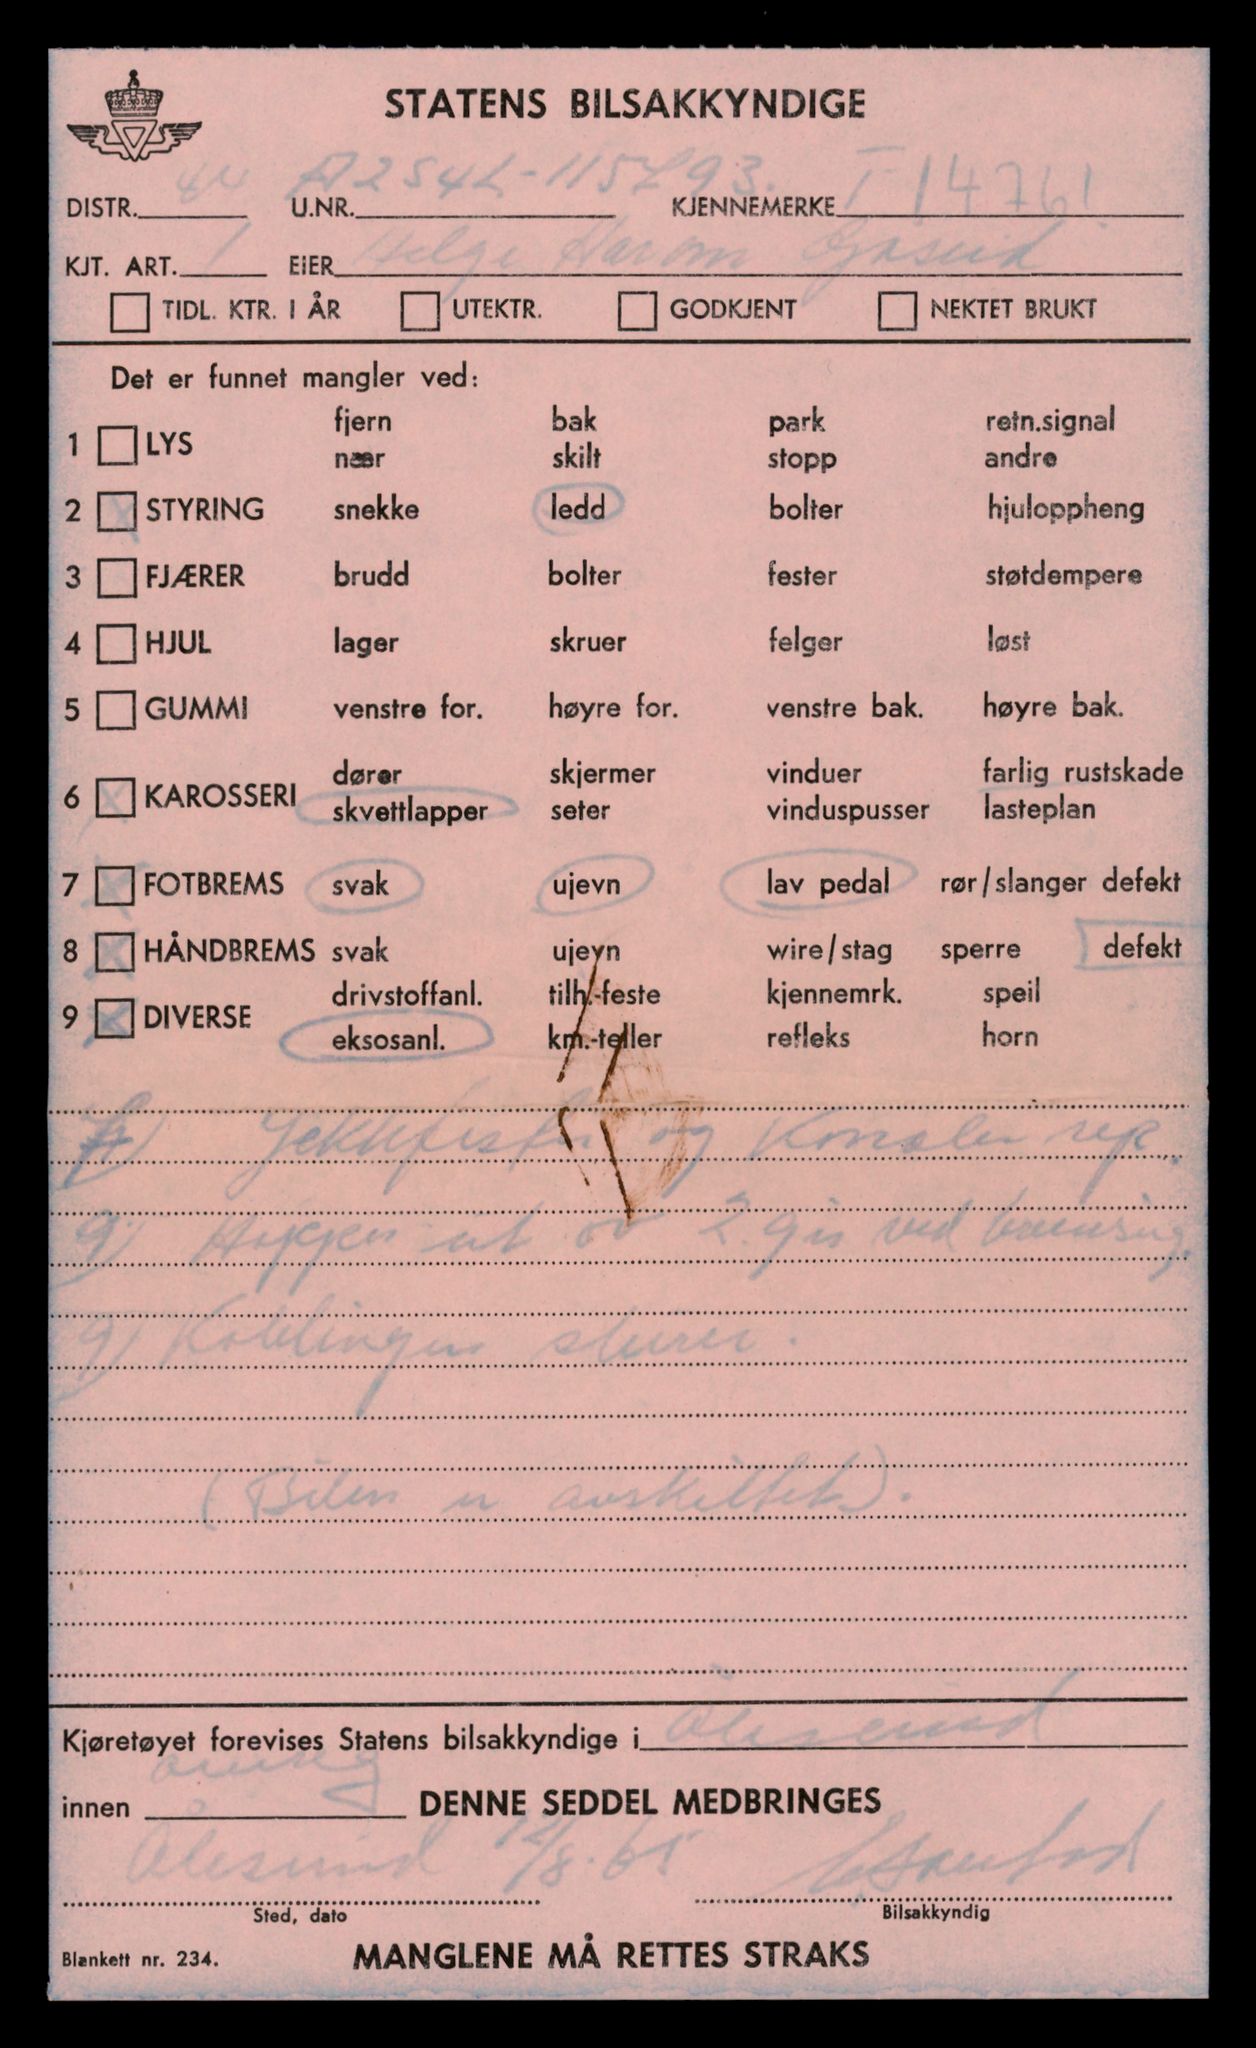 STATENS BILSAKKYNDIGE
DISTR. 44 U.NR. KJENNEMERKE T-14761
KJT. ART. 1 EIER Helge
TIDL. KTR. I ÅR UTEKTR. GODKJENT NEKTET BRUKT
Det er funnet mangler ved:
1 LYS fjern bak park retn.signal
nær skilt stopp andre
2 STYRING snekke ledd bolter hjuloppheng
3 FJÆRER brudd bolter fester støtdempere
4 HJUL lager skruer felger løst
5 GUMMI venstre for. høyre for. venstre bak. høyre bak.
6 KAROSSERI dører skjermer vinduer farlig rustskade
skvettlapper seter vinduspusser lasteplan
7 FOTBREMS svak ujevn lav pedal rør/slanger defekt
8 HÅNDBREMS svak ujevn wire/stag sperre defekt
9 DIVERSE drivstoffanl. tilh.-feste kjennemrk. speil
eksosanl. km.-teller refleks horn
Jekkfester og Konsoler rep.
9) Hopper ut av 2. gir ved bremsing.
9) Koblingen slurer.
(Bilen er avskiltet).
Kjøretøyet forevises Statens bilsakkyndige i Ålesund
innen DENNE SEDDEL MEDBRINGES
Ålesund 12/8-65
Sted, dato Bilsakkyndig
Blankett nr. 234. MANGLENE MÅ RETTES STRAKS